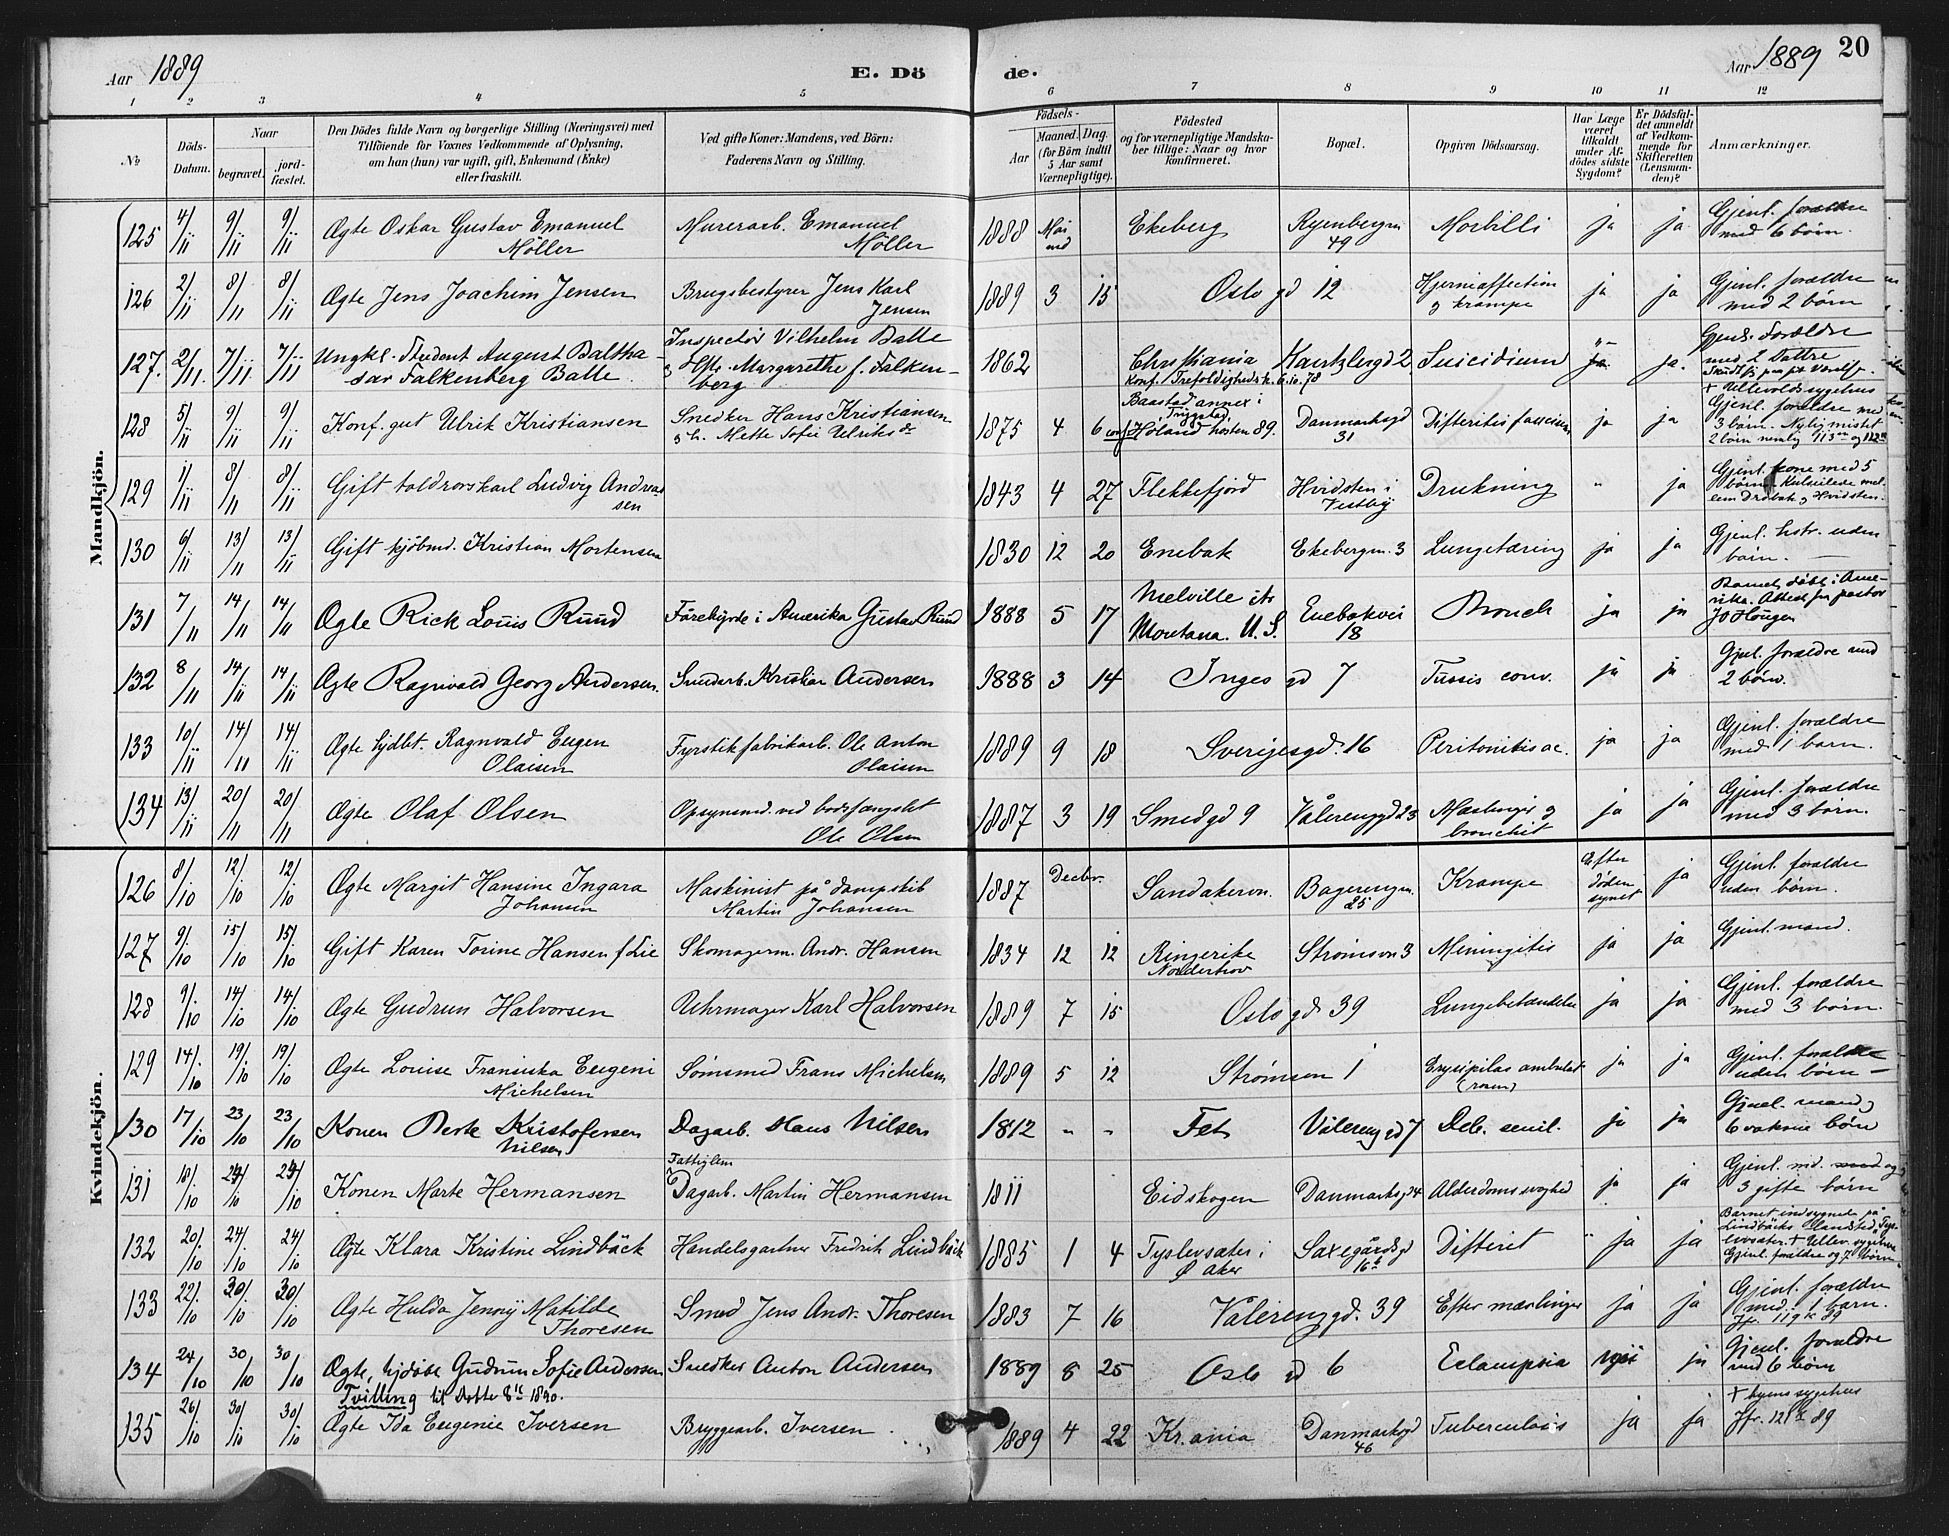 Aar 1889
E. Dö
de.
Aar 1889
20
1 2 3 4 5 6 7 8 9 10 11 12
№
Döds-Datum.
Naar
begravet.
jord-fæstet.
Den Dödes fulde Navn og borgerlige Stilling (Næringsvei) med
Tilföiende for Voxnes Vedkommende af Oplysning,
om han (hun) var ugift, gift, Enkemand (Enke)
eller fraskilt.
Ved gifte Koner: Mandens, ved Börn:
Faderens Navn og Stilling.
Födsels-
Aar
Maaned. Dag.
(for Börn indtil
5 Aar samt
Værnepligtige).
Födested
og for værnepligtige Mandska-
ber tillige: Naar og hvor
konfirmeret.
Bopæl.
Opgiven Dödsaarsag.
Har Læge
været
tilkaldt
under Af-
dödes sidste
Sygdom?
Er Dödsfal-
det anmeldt
af Vedkom-
mende for
Skifteretten
(Lensman-
den)?
Anmærkninger.
Mandkjön.
125 4/11 9/11 9/11 Ægte Oskar Gustav Emanuel Möller Murerarb. Emanuel Möller 1888 Ekeberg Ryenbergvn 49 Morbilli ja ja Gjenl. forældre med 6 börn.
126 2/11 8/11 8/11 Ægte Jens Joachim Jensen Brugsbestyrer Jens Karl Jensen 1889 3 15 Oslo gd 12 Hjerneaffection og krampe ja ja Gjenl. forældre med 2 börn
127. 2/11. 7/11 7/11 Ungkl. Student August Baltha-sar Falkenberg Balle. Inspectör Vilhelm Balle og Hstr. Margarethe f. Falken-berg 1862 Christiania Konf. i Trefoldighedsk. 6.10.78 Kantzlergd 2 Suicidium ja. Gjenl. Forældre med 2 Døttre
128 5/11 9/11 9/11 Konf. gut Ulrik Kristiansen Snedker Hans Kristiansen og h. Mette Sofie Ulriksdr 1875 4 6 Baastad annex i Trygstad, conf. Höland hösten 89. Danmarksgd 31 Difteritis faucium ja ja + Ullevolds sygehus Gjenl. forældre med 3 börn. Nylig mistet 2 börn nemlig
129 1/11 8/11 8/11 Gift toldrorskarl Ludvig Andreassen 1843 4 27 Flekkefjord Hvidsten i Vestby Drukning " ja Gjenl. kone med 5 börn. Kulseilede mellem Dröbak og Hvidsten.
130 6/11 13/11 13/11 Gift kjöbmd. Kristian Mortensen 1830 12 20 Enebak Ekebergvn. 3 Lungetæring ja ja Gjenl. hstr. uden börn.
131 7/11 14/11 14/11 Ægte Rick Louis Rund Gustav Rund 1888 5 17 Melville Montana. U.S. Enebakvei 18 Bronch ja ja Barnet döbt i Ame-rika. Attest fra pastor
132 8/11 14/11 14/11 Ægte Ragnvald Georg Andersen. Smedarb. Kristian Andersen 1888 3 14 Inges gd 7 Tussis conv. ja ja Gjenl. forældre med 2 börn.
133 10/11 14/11 14/11 Ægte hjdbt. Ragnvald Eugen Olaisen Fyrstikfabrikarb. Ole Anton Olaisen 1889 9 18 Sverigesgd. 16 Peritonitis ac. ja ja Gjenl. forældre med 1 barn.
134 13/11 20/11 20/11 Ægte Olaf Olsen Opsynsmd. ved bodsfængslet Ole Olsen 1887 3 19 Smedgd 9 Vålerenggd 23 Mæslinger og bronchit ja ja Gjenl. forældre med 3 börn.
Kvindekjön.
126 8/10 12/10 12/10 Ægte Margit Hansine Ingara Johansen Maskinist på dampskib Martin Johansen 1887 Decbr. Sandakervn. Bagerengvn. 25 Krampe Efter döden synet ja Gjenl. forældre uden börn.
127 9/10 15/10 15/10 Gift Karen Torine Hansen f Lie Skomagerm. Andr. Hansen 1834 12 12 Ringerike Norderhov Strömsvn 3 Meningitis ja ja Gjenl. mand.
128 9/10 14/10 14/10 Ægte Gudrun Halvorsen Uhrmager Karl Halvorsen 1889 7 15 Oslo gd 39 Lungebetændelse ja ja Gjenl. forældre med 3 börn.
129 14/10 19/10 19/10 Ægte Louise Fransiska Eugeni Michelsen Sömsmed Frans Michelsen 1889 5 12 Strömsvn 1 Erysipilas ambulat (rosen) ja ja Gjenl. forældre uden börn
130 17/10 23/10 23/10 Konen Berte Kristofersen Nilsen Dagarb. Hans Nilsen 1812 " " Fet Vålerenggd 7 Deb. senil. ja ja Gjenl. mand og 6 voksne börn
131 18/10 24/10 24/10 Konen Marte Hermansen Fattiglem Dagarb. Martin Hermansen 1811 Eidskogen Danmarksgd 4 Alderdomssvaghed ja ja Gjenl. md. og 3 gifte börn
132 20/10 24/10 24/10 Ægte Klara Kristine Lindbäck Handelsgartner Fredrik Lindbäck 1885 1 4 Tyslevsæter i Ø Aker Saxegårdsgd 16b Difterit ja ja Barnet indsygnet på Lindbäcks landsted, Tyslevsæter. + Ullev. sygehus Gjenl. forældre og 7 börn
133 22/10 30/10 30/10 Ægte Hulda Jenny Matilde Thoresen Smed Jens Andr. Thoresen 1883 7 16 Vålerenggd. 39 Efter mæslinger ja ja Gjenl. forældre med 1 barn. Jfr. 119 k 89
134 24/10 30/10 30/10 Ægte, hjdöbt Gudrun Sofie Andersen Tvilling til Dette 8 1890. Snedker Anton Andersen 1889 8 25 Oslo gd 6 Eclampsia nei ja Gjenl. forældre med 6 börn
135 26/10 30/10 30/10 Ægte Ida Eugenie Iversen Bryggearb. Iversen 1889 4 22 Kr.ania Danmarksgd 46 Tuberculosis ja ja + byens sygehus Jfr. 89